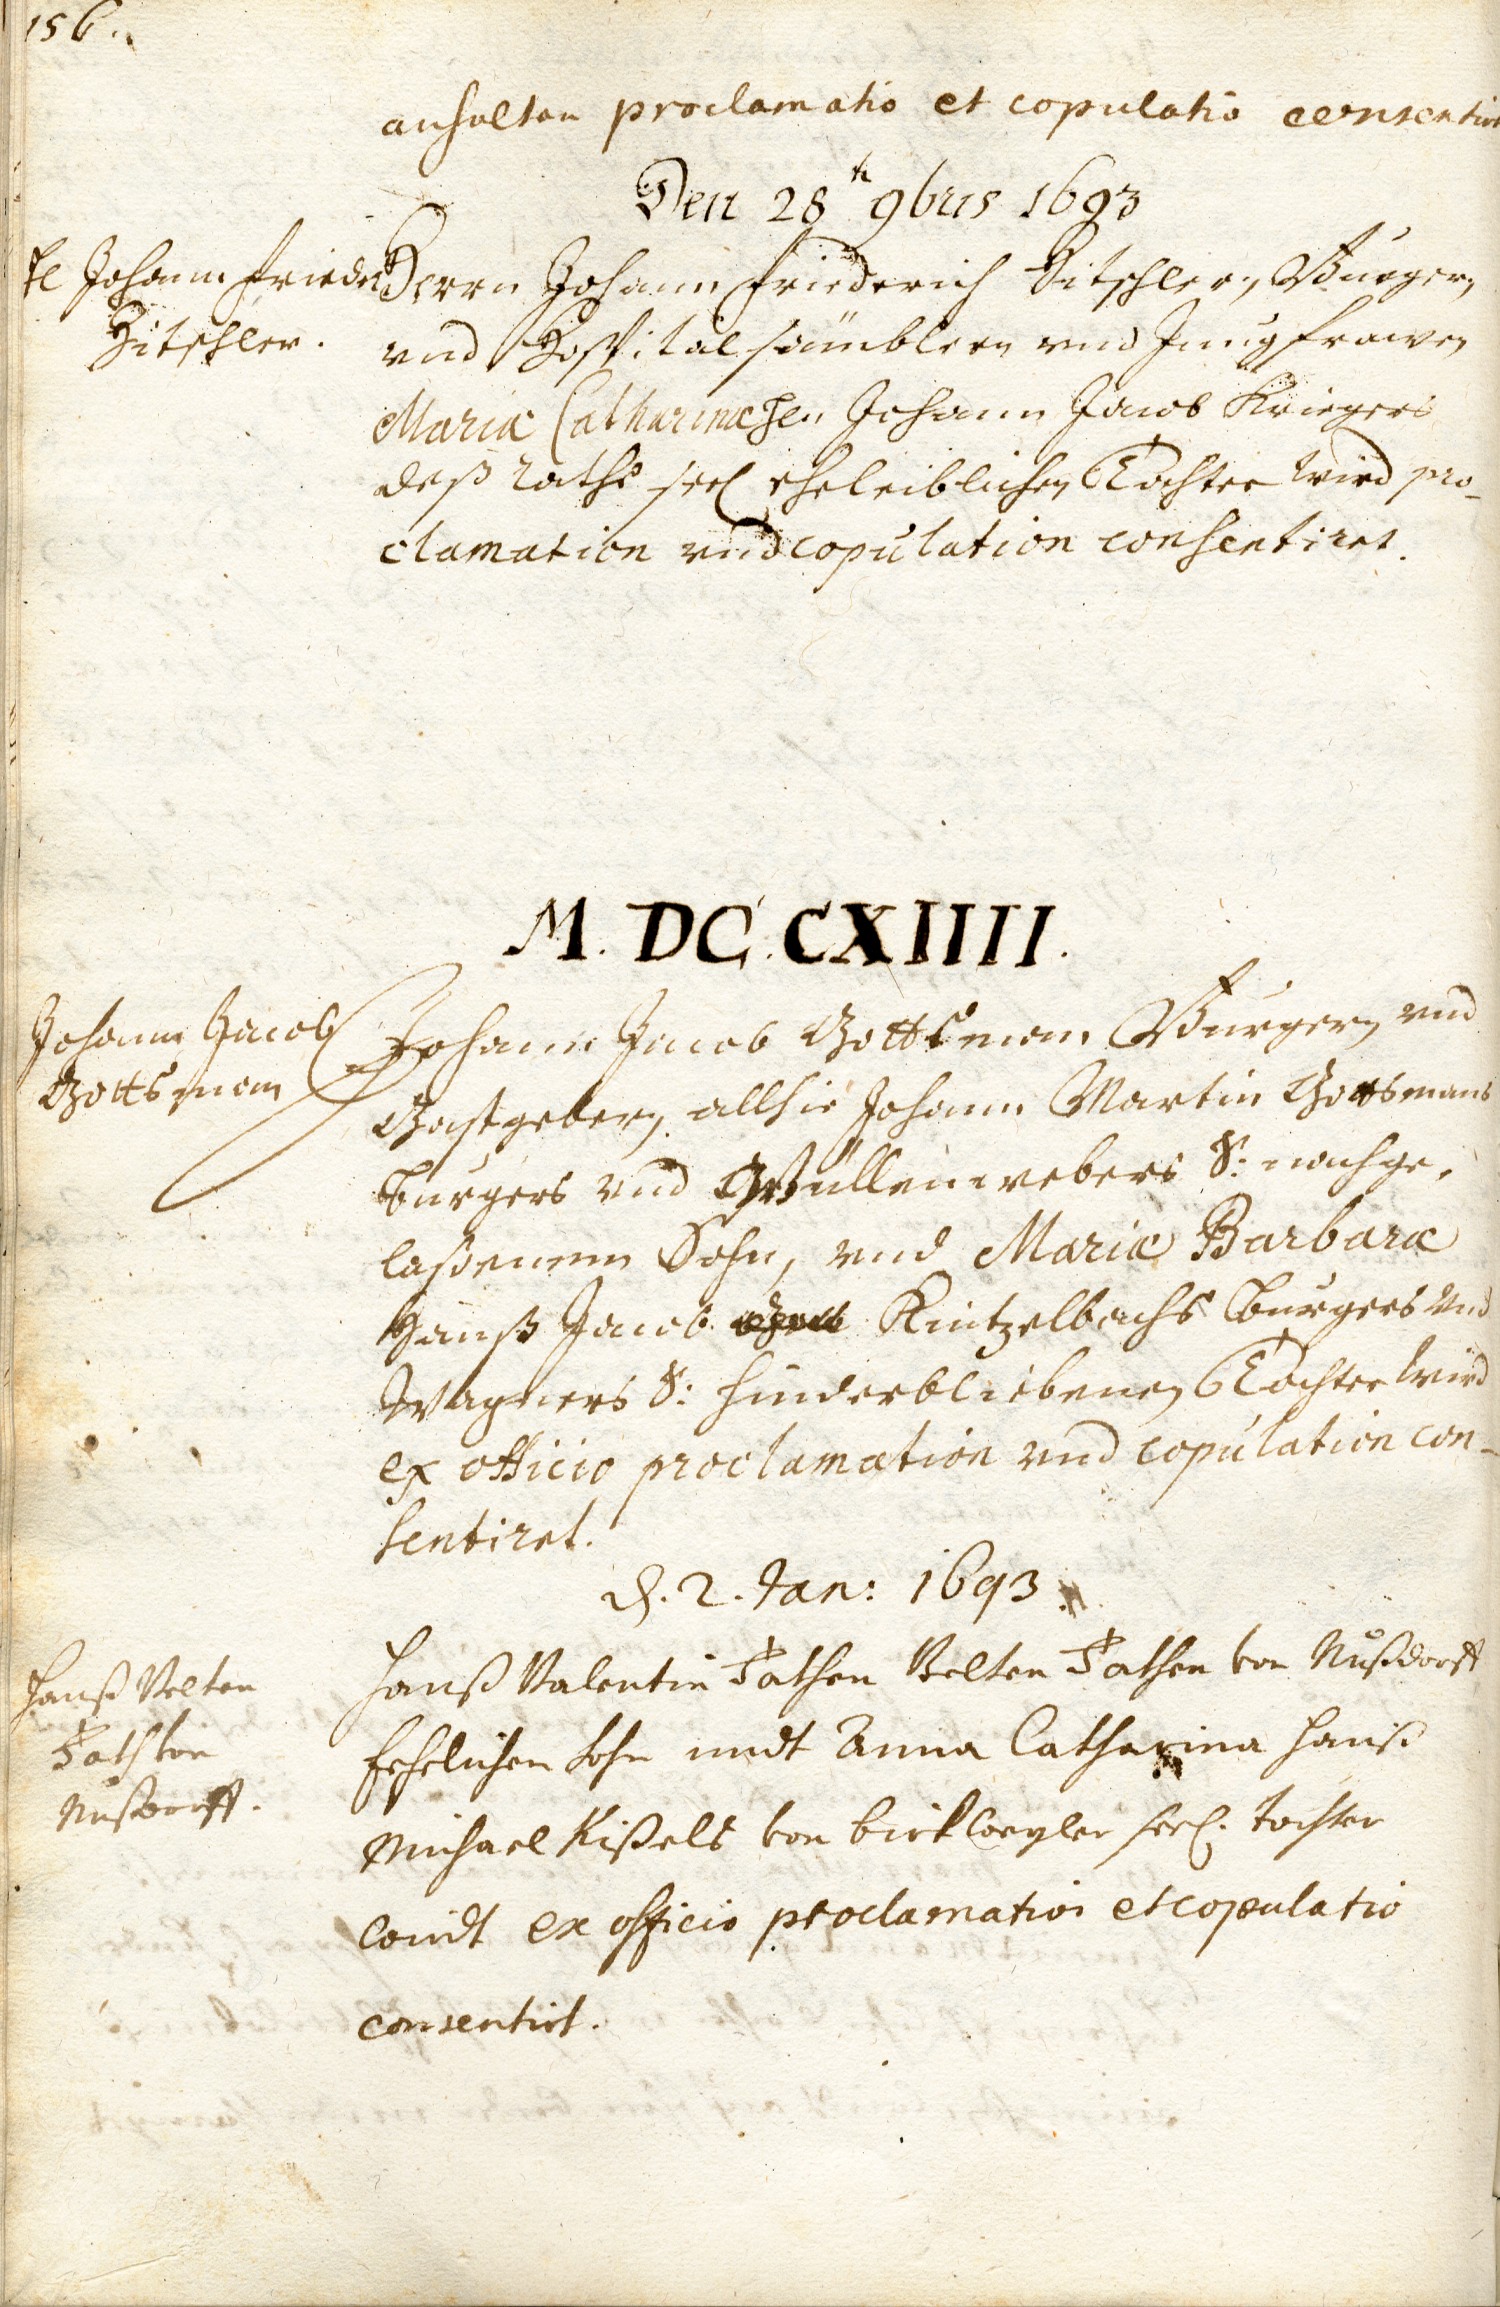 156.
anhalten proclamatio et copulatio consentirt
Den 28ten 9bris 1693
H Johann Frieder
Hitschler.
Herrn Johann Friederich Hitschler, Burger,
vnd Hospitalschäubleren vnd Jungfrawen
Mariæ Catharinæ Hen Johann Jacob Kriegers
deß raths seel eheleiblichen Tochter wird pro-
clamation vnd copulation consentiret.
M. DC. CXIIII.
Johann Jacob
Gottsman
Johann Jacob Gottsman Burgern vnd
Gastgebern, allhie Johann Martin Gottsmans
burgers vnd Wüllenwebers S: nachge,
laßenem Sohn, vnd Mariæ Barbaræ
Hanß Jacob Kintzelbachs burgers vnd
Wagners S: hinderbliebenen Tochter wird
ex officio proclamation vnd copulation con-
sentiret.
d. 2. Jan: 1693.
Hanß Velten
Fath von
Nußdorff.
Hanß Valentin Fathen Velten Fathen von Nußdorff
Eehelichen Sohn undt Anna Catharina Hanß
Michael Kißels von birckweyler seel. tochter
wirdt ex officio proclamatio et copulatio
consentirt.